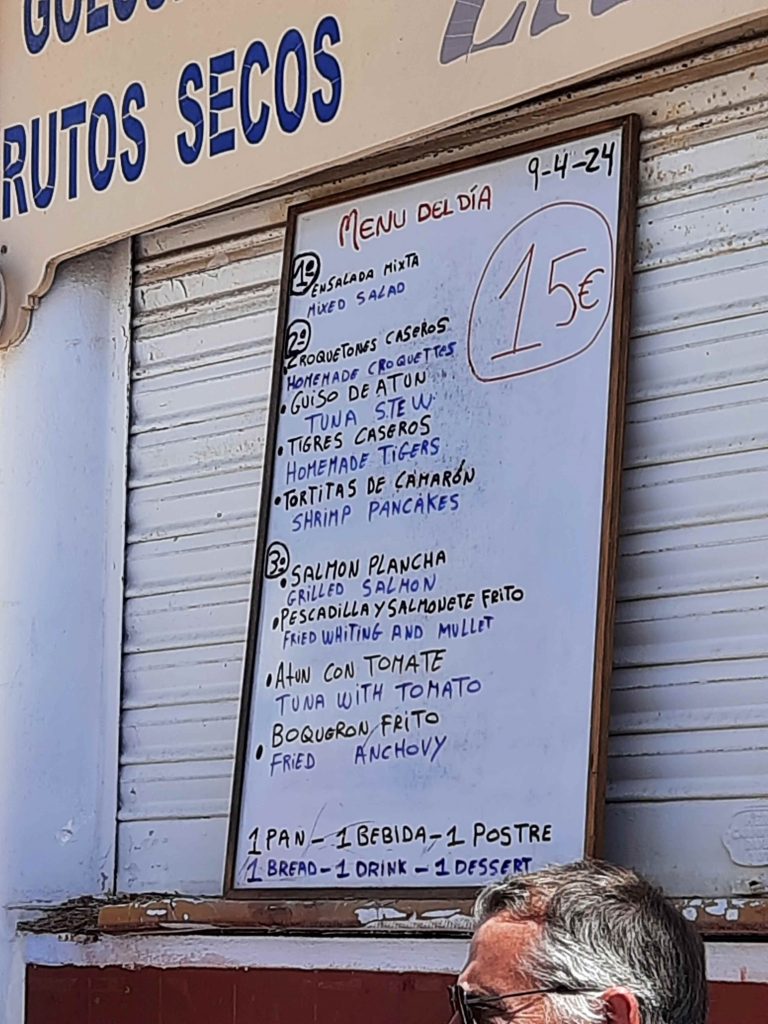 RUTOS SECOS
9-4-24
MENU DEL DÍA
15€
1º
ENSALADA MIXTA
MIXED SALAD
2º
CROQUETONES CASEROS
HOMEMADE CROQUETTES
• GUISO DE ATUN
TUNA STEW
• TIGRES CASEROS
HOMEMADE TIGERS
• TORTITAS DE CAMARÓN
SHRIMP PANCAKES
3º
• SALMON PLANCHA
GRILLED SALMON
• PESCADILLA Y SALMONETE FRITO
FRIED WHITING AND MULLET
• ATUN CON TOMATE
TUNA WITH TOMATO
• BOQUERON FRITO
FRIED ANCHOVY
1 PAN - 1 BEBIDA - 1 POSTRE
1 BREAD - 1 DRINK - 1 DESSERT